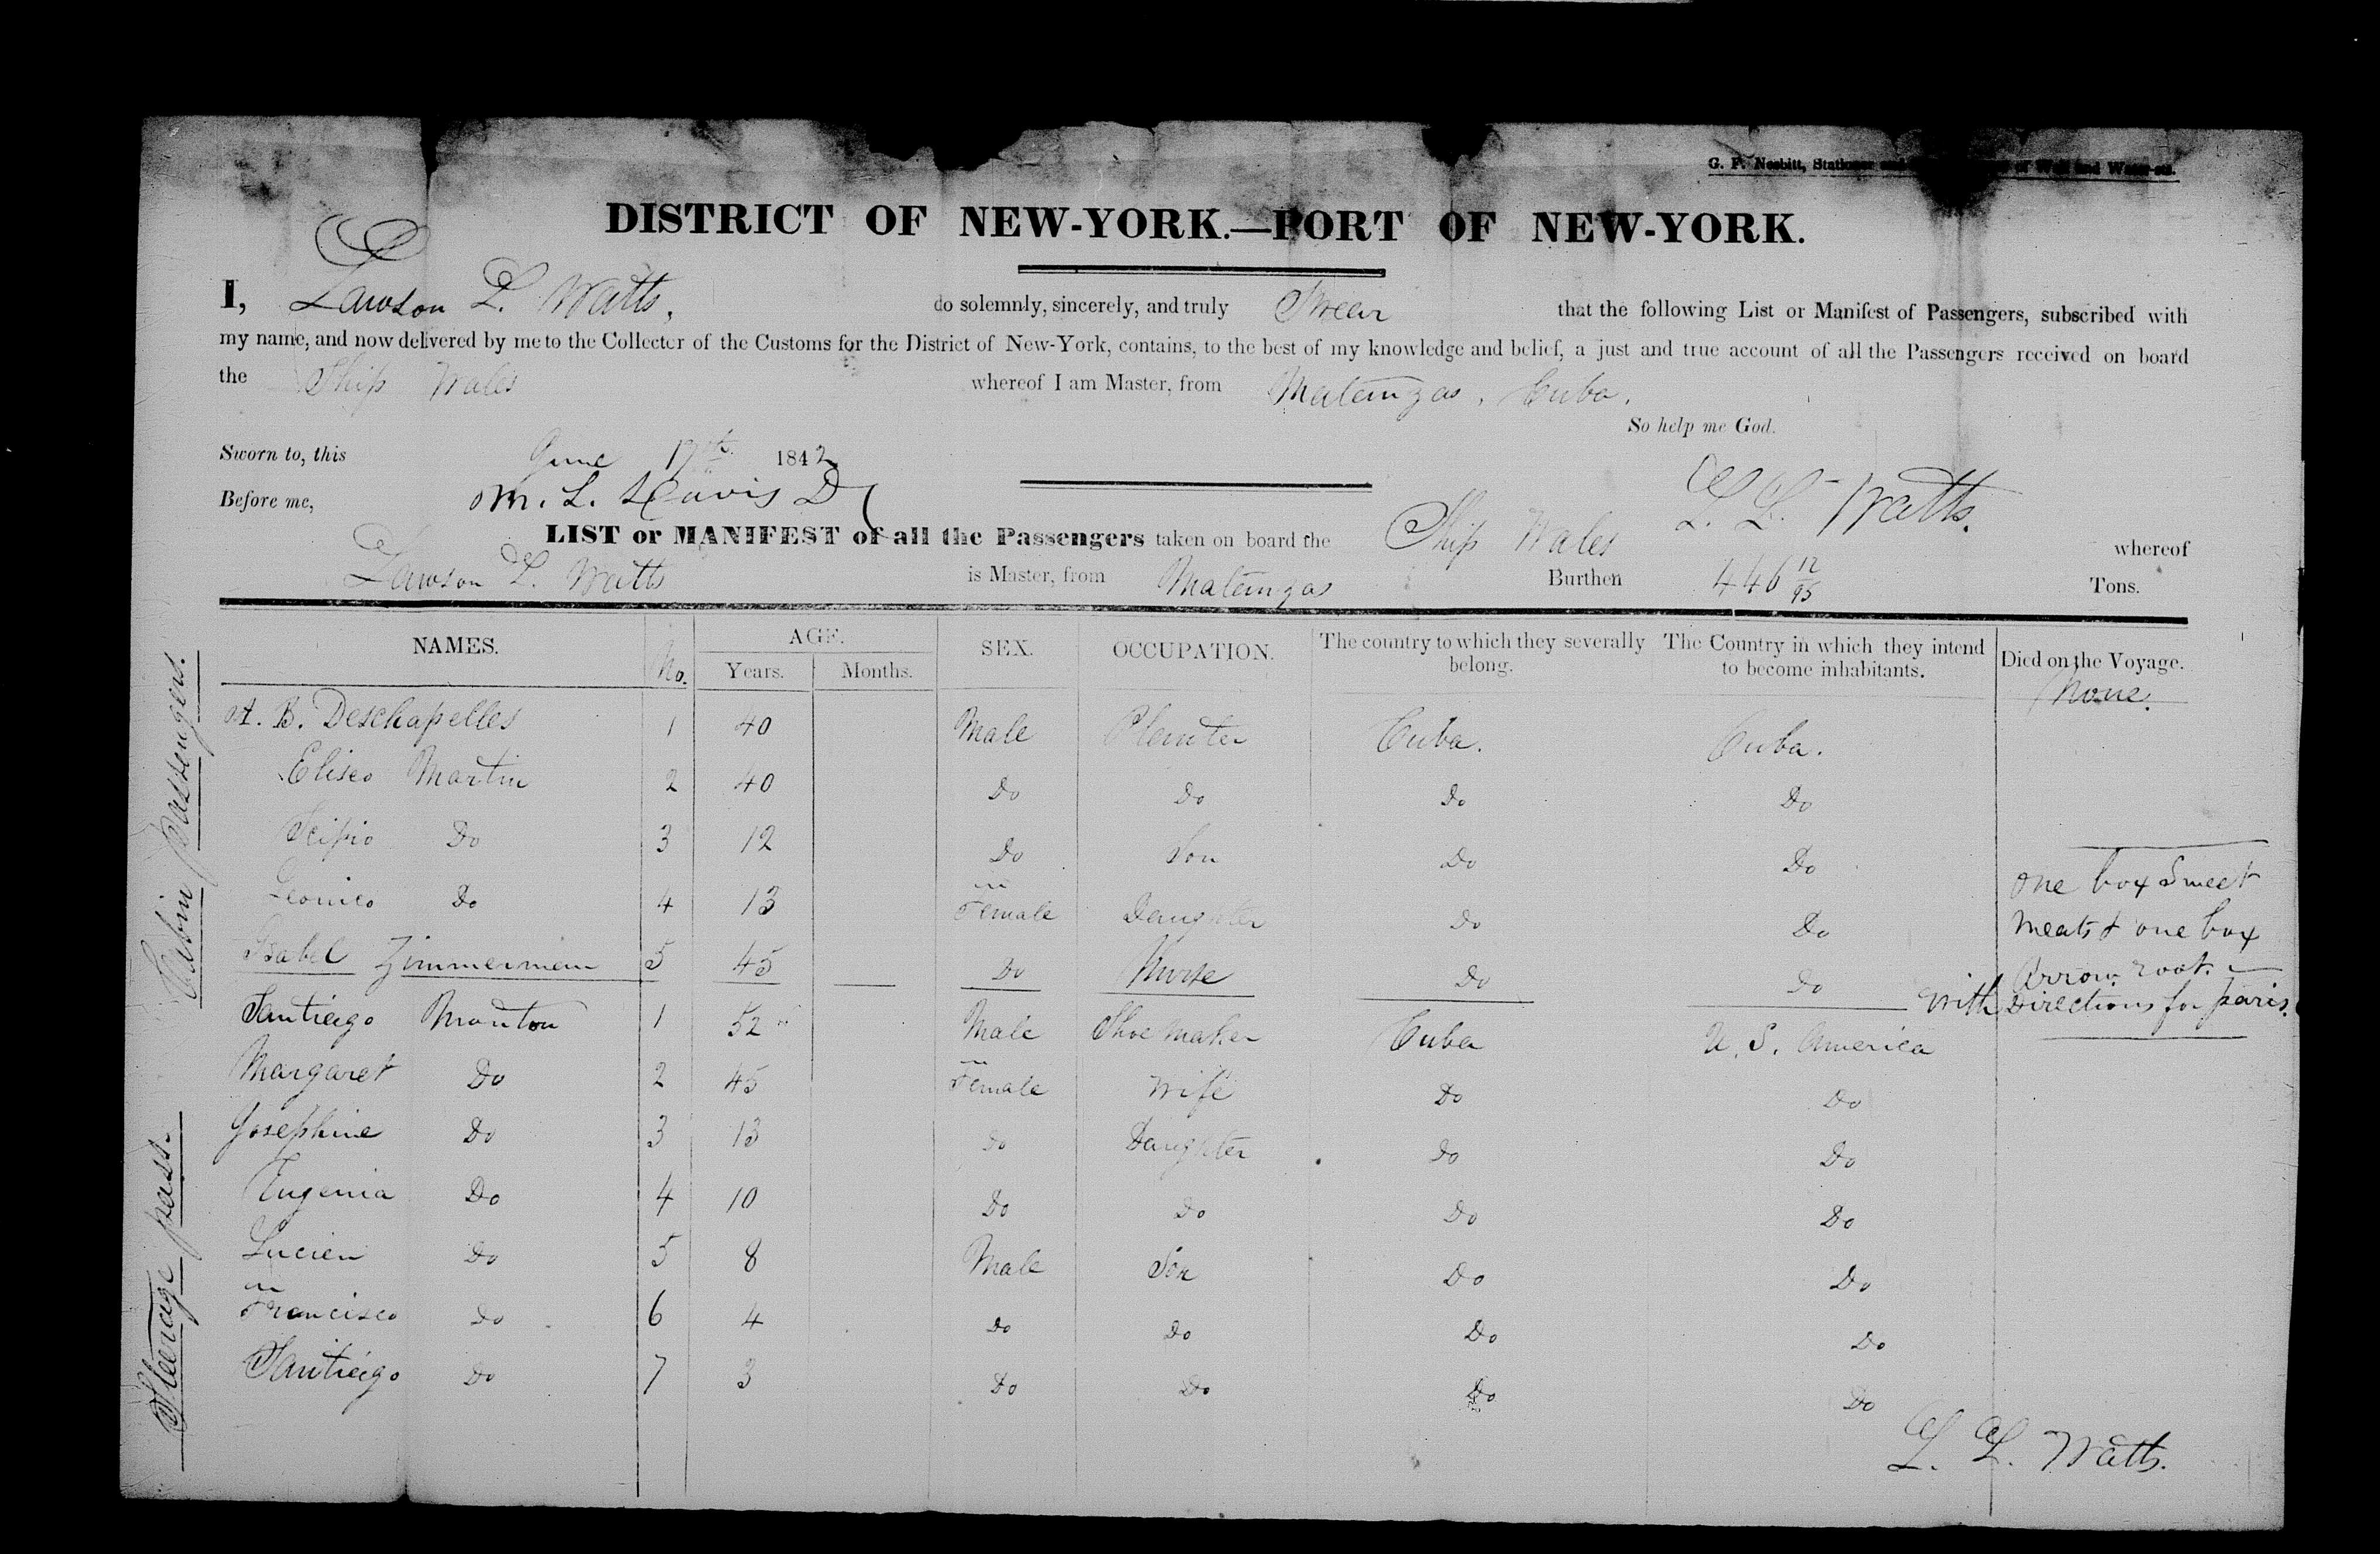 G. F. Nesbitt, Stationer and
DISTRICT OF NEW-YORK.—PORT OF NEW-YORK.
I, Lawson L. Watts, do solemnly, sincerely, and truly Swear that the following List or Manifest of Passengers, subscribed with
my name, and now delivered by me to the Collector of the Customs for the District of New-York, contains, to the best of my knowledge and belief, a just and true account of all the Passengers received on board
the Ship Wales whereof I am Master, from Matanzas, Cuba.
So help me God.
Sworn to, this June 17th 1842
Before me, M. L. Davis L. L. Watts.
LIST or MANIFEST of all the Passengers taken on board the Ship Wales whereof
Lawson L. Watts is Master, from Matanzas Burthen 446 12/95 Tons.
NAMES. No. AGE. Years. Months. SEX. OCCUPATION. The country to which they severally belong. The Country in which they intend to become inhabitants. Died on the Voyage.
None.
Cabin passengers.
A. B. Deschapelles 1 40 Male Planter Cuba. Cuba.
Eliseo Martin 2 40 Do Do Do Do
Scipio Do 3 12 Do Son Do Do
Do 4 13 Female Daughter Do Do
Isabel Zimmerman 5 45 Do Nurse Do Do
one box Sweet
meats & one box
Arrow root.
with Directions for paris.
Steerage pass.
Santiago Monton 1 52 Male Shoe maker Cuba U. S. America
Margaret Do 2 45 Female Wife Do Do
Josephine Do 3 13 Do Daughter Do Do
Eugenia Do 4 10 Do Do Do Do
Lucien Do 5 8 Male Son Do Do
Francisco Do 6 4 Do Do Do Do
Santiago Do 7 3 Do Do Do Do
L. L. Watts.